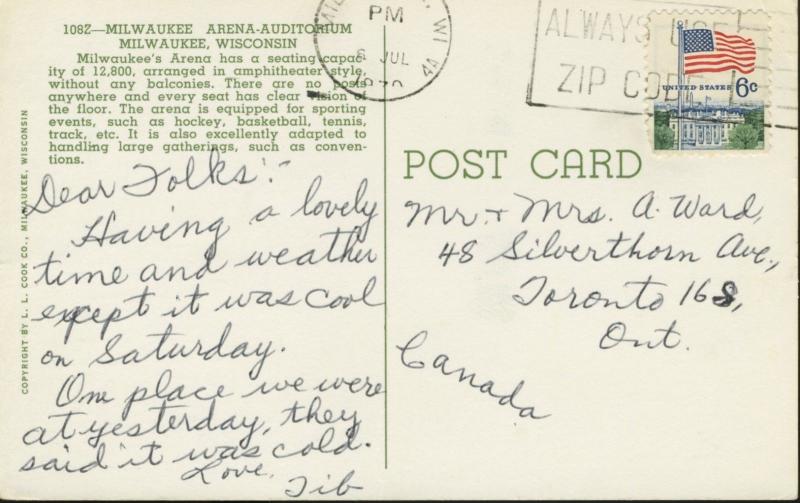 108Z—MILWAUKEE ARENA-AUDITORIUM
MILWAUKEE, WISCONSIN
Milwaukee's Arena has a seating capac-
ity of 12,800, arranged in amphitheater style,
without any balconies. There are no posts
anywhere and every seat has clear vision of
the floor. The arena is equipped for sporting
events, such as hockey, basketball, tennis,
track, etc. It is also excellently adapted to
handling large gatherings, such as conven-
tions.
COPYRIGHT BY L. L. COOK CO., MILWAUKEE, WISCONSIN
Dear Folks:-
Having a lovely
time and weather
except it was cool
on Saturday.
One place we were
at yesterday, they
said it was cold.
Love,
Tib
PM
6 JUL
WI
4A
ALWAYS USE
ZIP CODE
UNITED STATES 6c
POST CARD
Mr. + Mrs. A. Ward,
48 Silverthorn Ave.,
Toronto 168,
Ont.
Canada